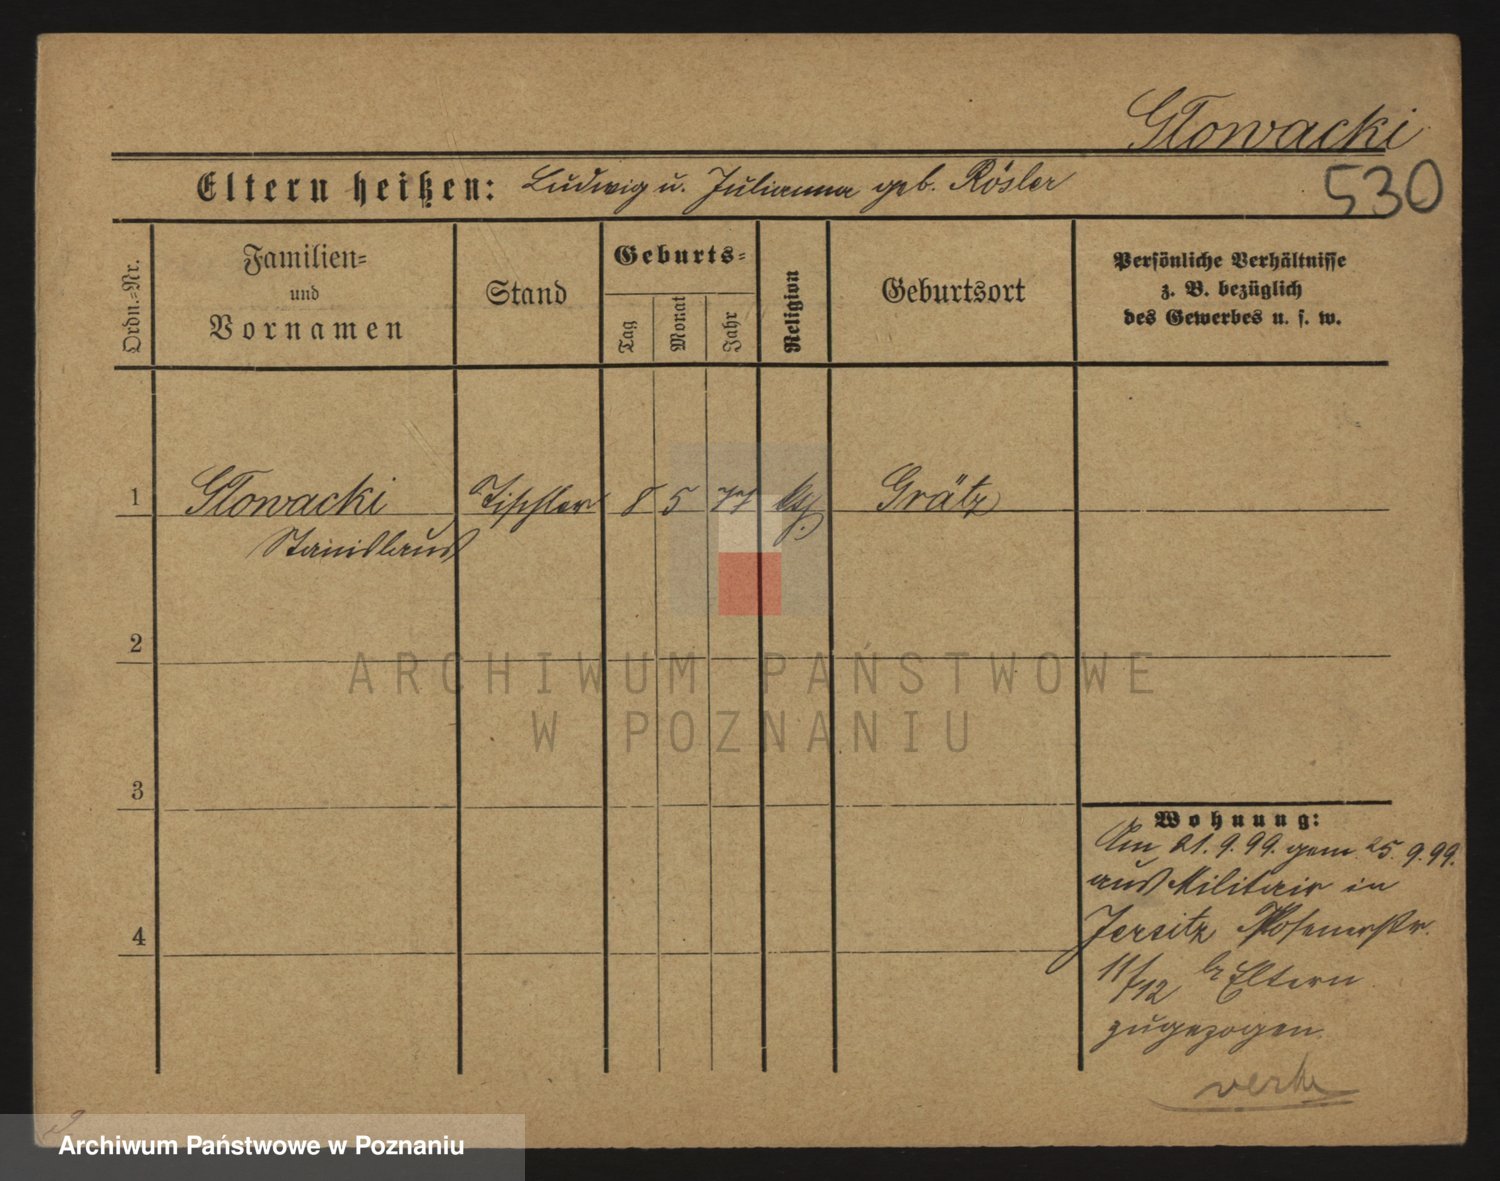 Głowacki
Eltern heißen: Ludwig u. Julianna geb. Rösler
530
Ordn.=Nr.
Familien=
und
Vornamen
Stand
Geburts=
Tag
Monat
Jahr
Religion
Geburtsort
Persönliche Verhältnisse
z. B. bezüglich
des Gewerbes u. s. w.
1 Głowacki Tischler 8 5 77 kth. Grätz
Stanislaus
2
3
4
Wohnung:
Am 21.9.99. gem 25.9.99.
aus Militair in
Jersitz Posenerstr.
11/12 bei Eltern
zugezogen
ARCHIWUM PAŃSTWOWE
W POZNANIU
Archiwum Państwowe w Poznaniu